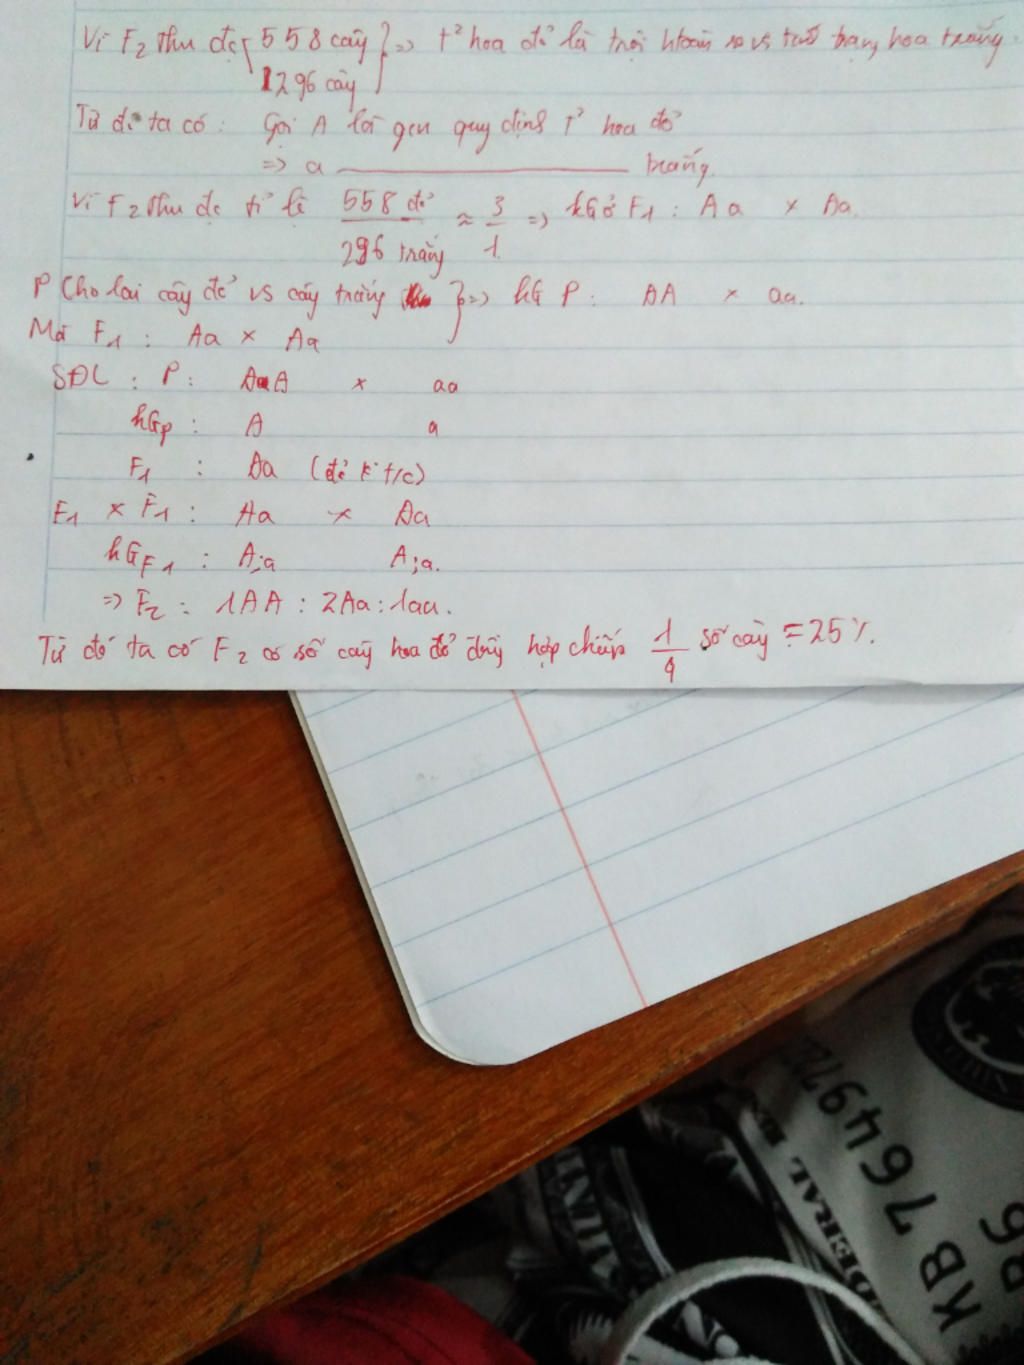 Vì F2 thu đc 558 cây } => t² hoa đỏ là trội htoàn so vs trạng hoa trắng.
1296 cây
Từ đó ta có: Gọi A là gen quy định T² hoa đỏ
=> a ———————— trắng.
Vì F2 thu đc tỉ lệ 558 đỏ / 296 trắng ≈ 3/1 => kG ở F1: Aa × Aa
P Cho lai cây đỏ vs cây trắng } => kG P: AA × aa.
Mà F1: Aa × Aa
SĐL: P: AA × aa
kGp: A a
F1: Aa (đỏ k° t/c)
F1 × F1: Aa × Aa
kGF1: A;a A;a.
=> F2: 1AA: 2Aa: 1aa.
Từ đó ta có F2 có số cây hoa đỏ đồng hợp chiếm 1/4 số cây = 25%.
DERAL
KB 76497
B6